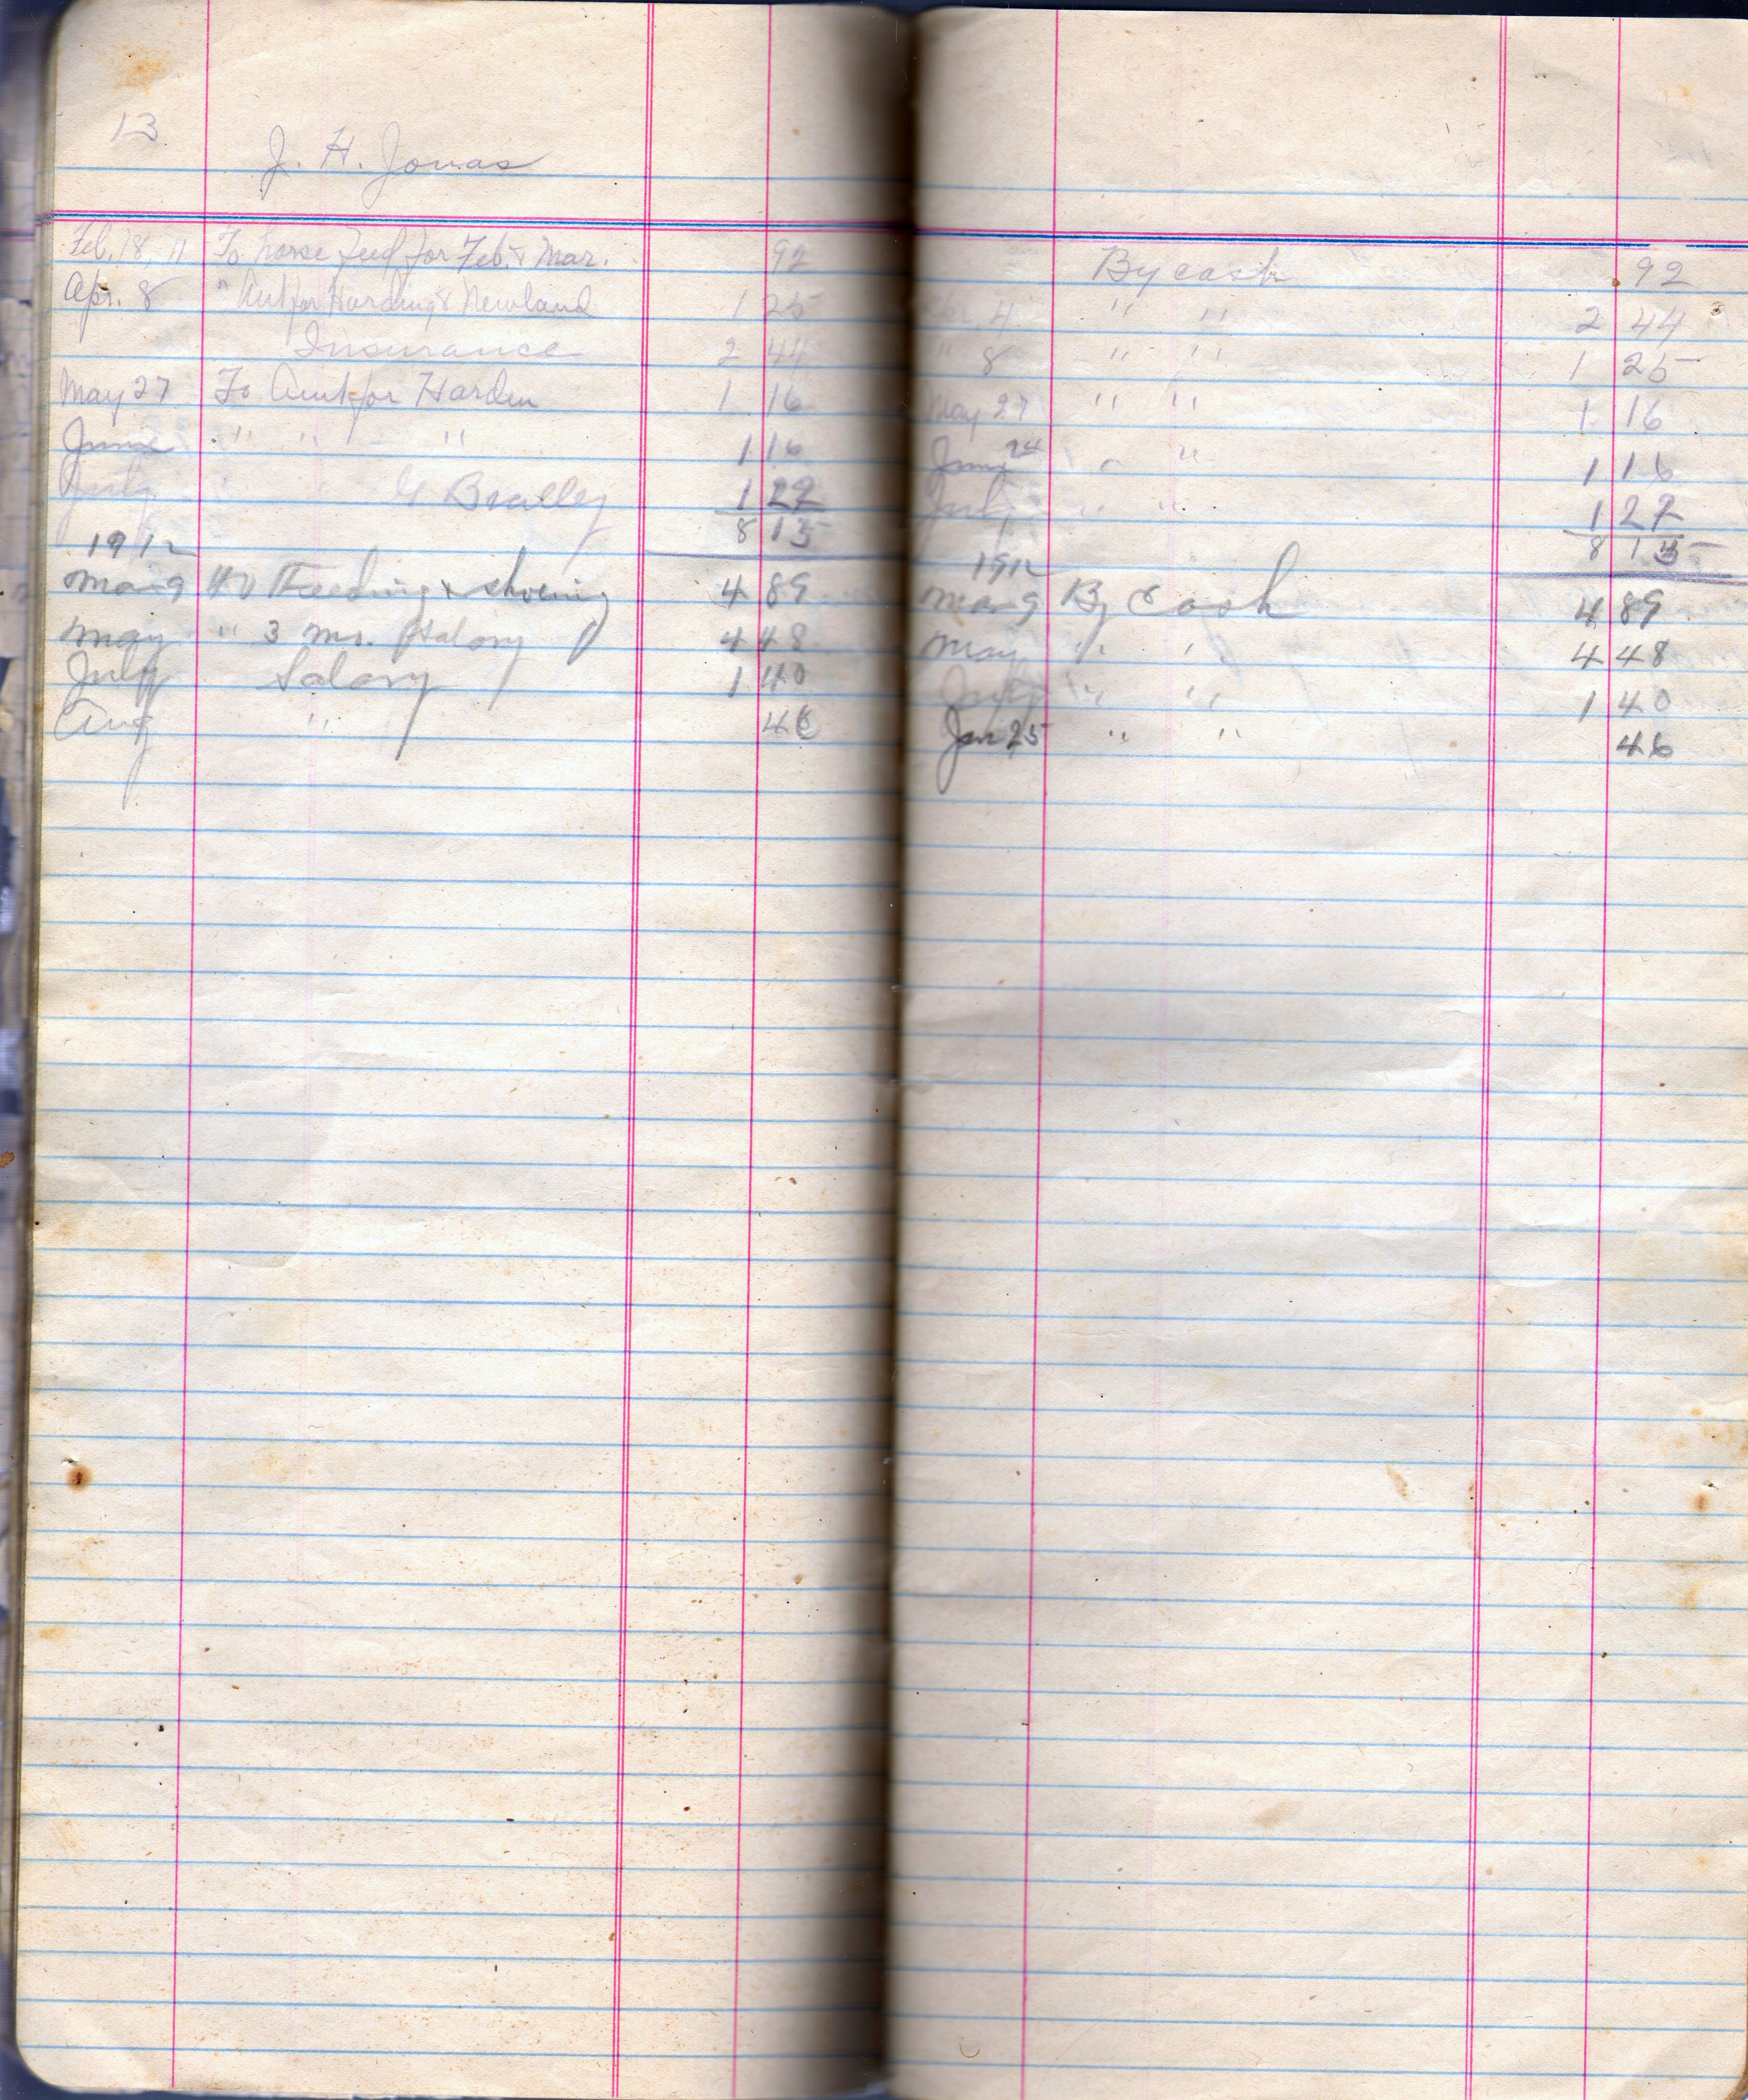 13
J. H. Jonas
Feb. 18, 11 To horse feed for Feb. & Mar. 92
Apr. 8 " Amt for Harding & Newland 1 25
Insurance 2 44
May 27 To Amt for Harden 1 16
June " " " 1 16
July Bradley 1 22
8 15
1912
Mar 9 To Feeding & shoeing 4 89
May " 3 mo. Salary 4 48
July Salary 1 40
Aug " 46
By cash 92
4 " " 2 44
" 8 " " 1 25
May 27 " " 1 16
June 24 " " 1 16
July " " 1 22
8 15
1912
Mar 9 By Cash 4 89
May " " 4 48
July " " 1 40
Jan 25 " " 46